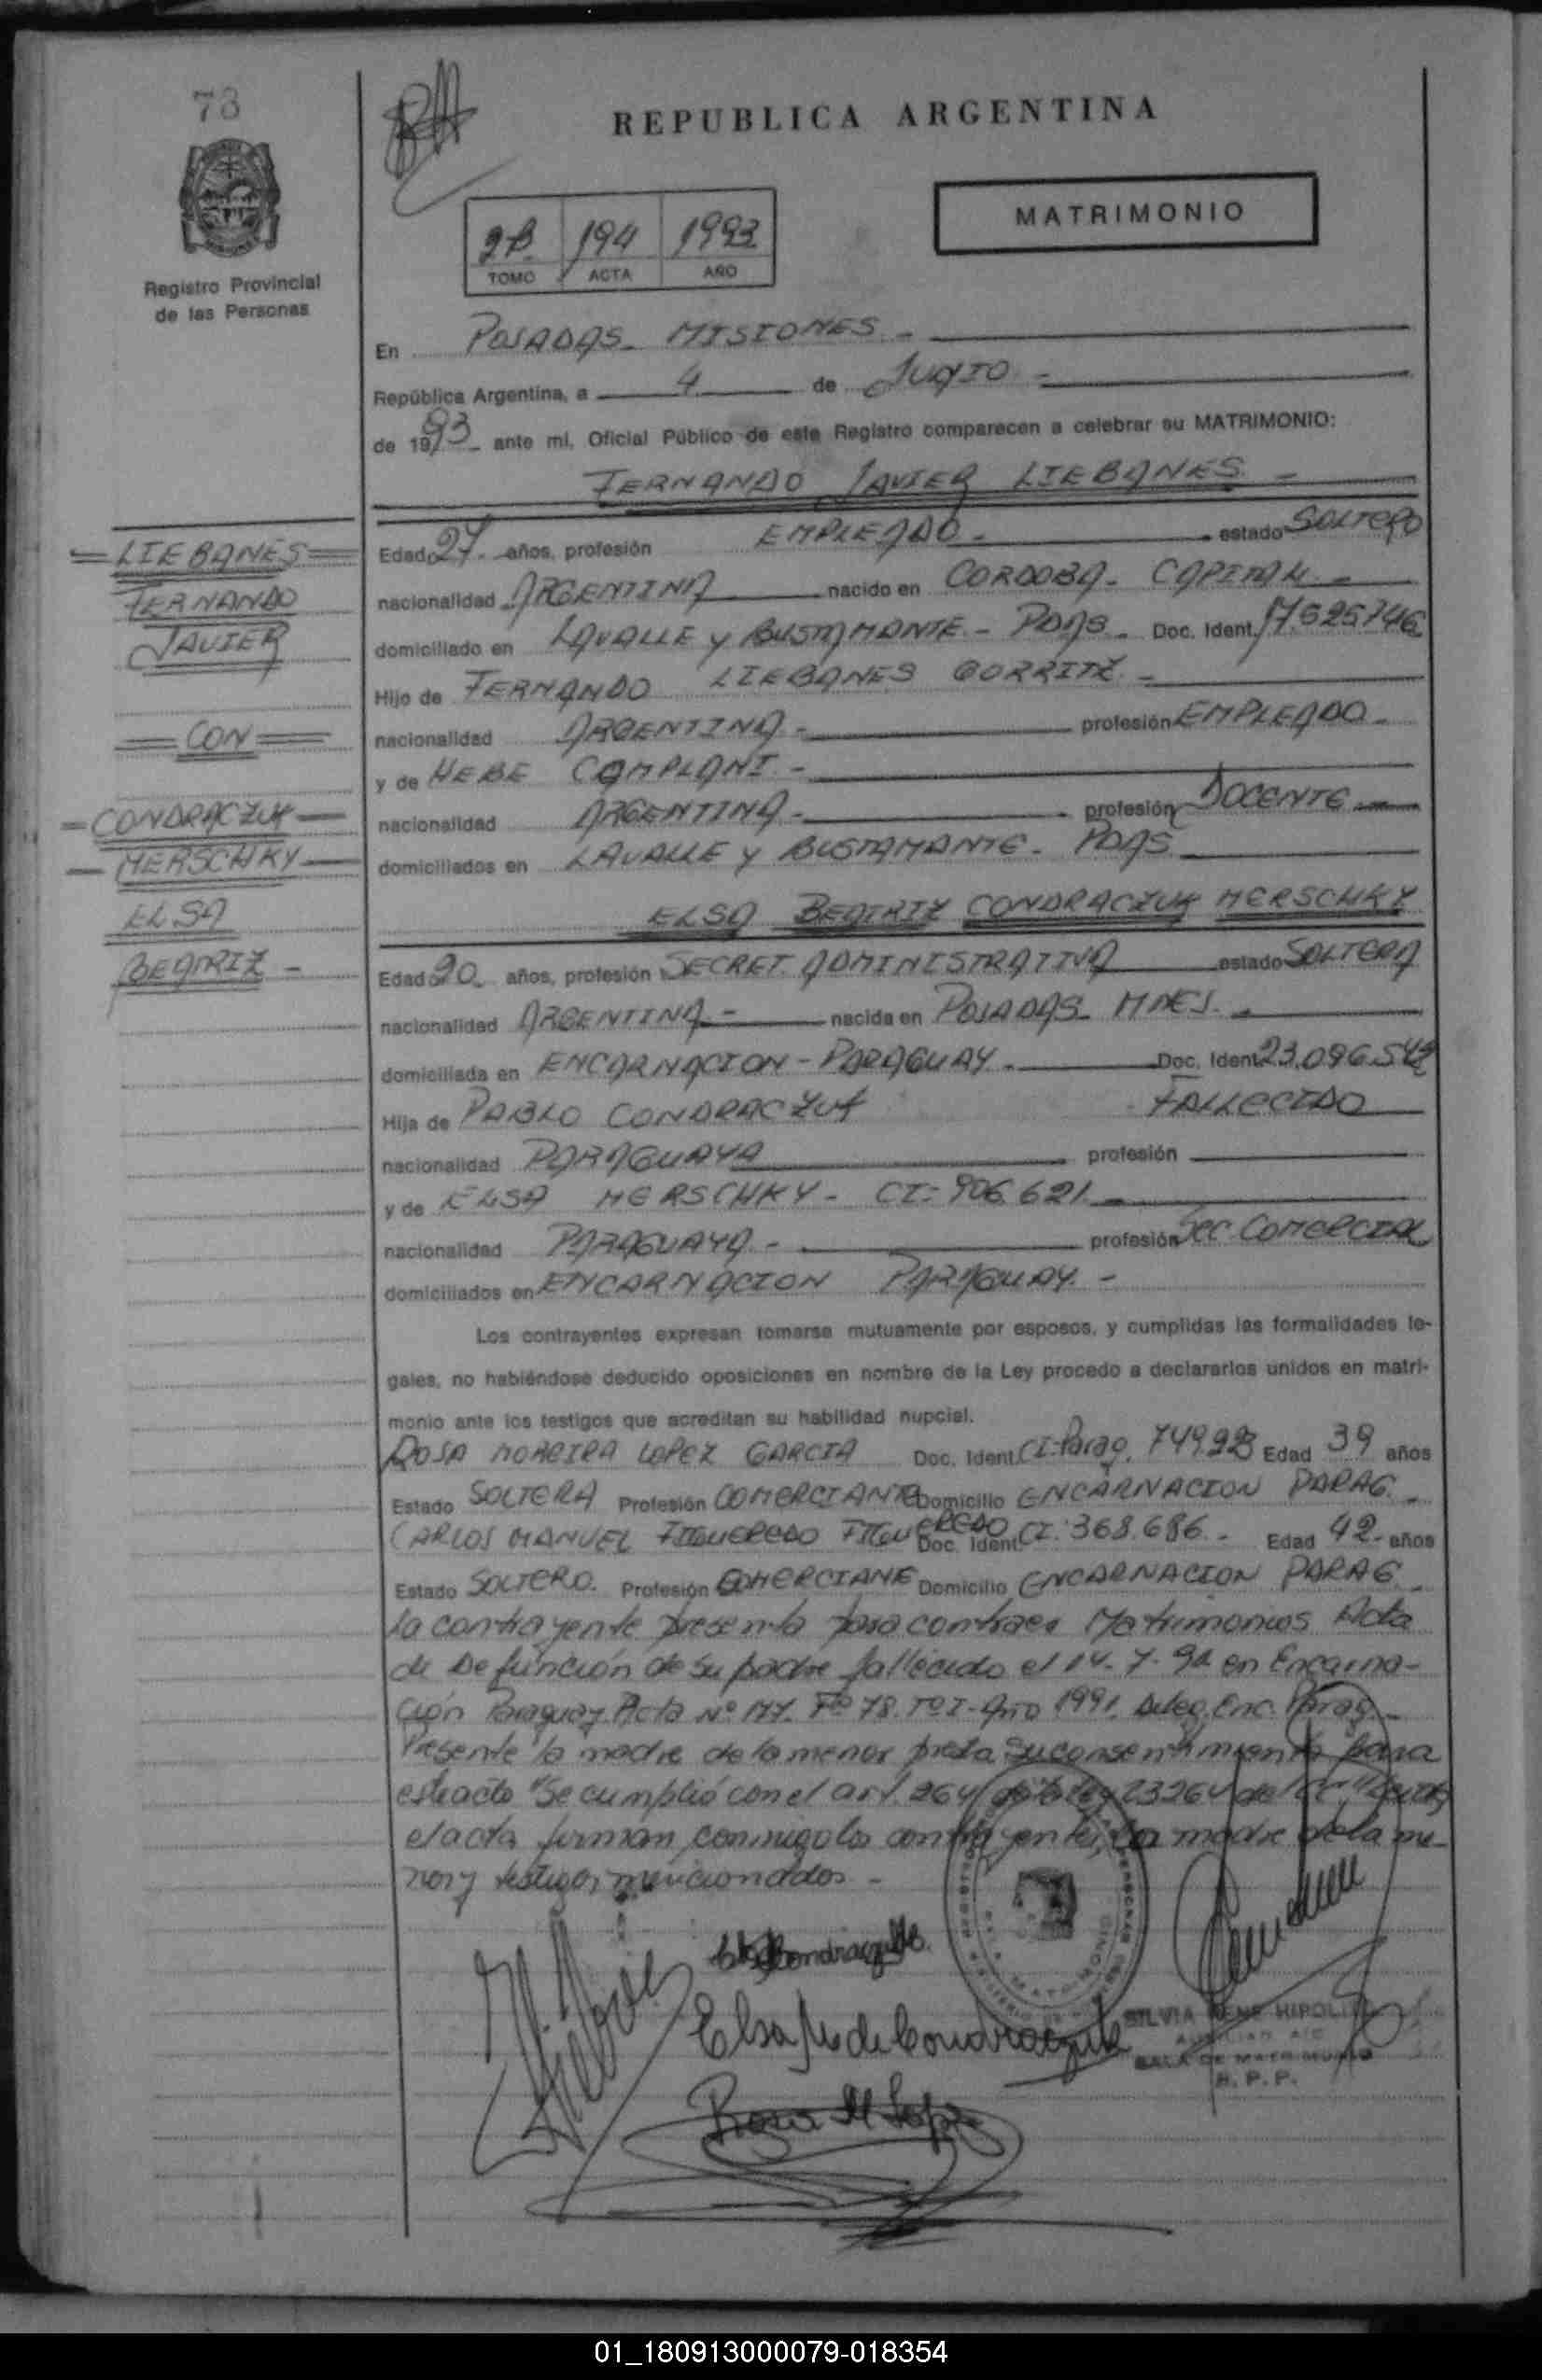 78
REPUBLICA ARGENTINA
MATRIMONIO
2B 194 1993
TOMO ACTA AÑO
Registro Provincial
de las Personas
En POSADAS - MISIONES -
República Argentina, a 4 de JUNIO -
de 1993 - ante mi, Oficial Público de este Registro comparecen a celebrar su MATRIMONIO:
FERNANDO JAVIER LIEBANES -
= LIEBANES =
FERNANDO
JAVIER
= CON =
- CONDRACZUK -
- HERSCHKY -
ELSA
BEATRIZ -
Edad 27 - años, profesión EMPLEADO - estado SOLTERO
nacionalidad ARGENTINA nacido en CORDOBA - CAPITAL -
domiciliado en LAVALLE y BUSTAMANTE - PDAS - Doc. Ident. 17.625.746
Hijo de FERNANDO LIEBANES GORRITZ -
nacionalidad ARGENTINA - profesión EMPLEADO -
y de HEBE COMPLANI -
nacionalidad ARGENTINA - profesión DOCENTE
domiciliados en LAVALLE y BUSTAMANTE - PDAS
ELSA BEATRIZ CONDRACZUK HERSCHKY
Edad 20 años, profesión SECRET. ADMINISTRATIVA estado SOLTERA
nacionalidad ARGENTINA - nacida en POSADAS MNES. -
domiciliada en ENCARNACION - PARAGUAY - Doc. Ident. 23.096.542
Hija de PABLO CONDRACZUK - FALLECIDO
nacionalidad PARAGUAYA profesión
y de ELSA HERSCHKY - CI: 906.621 -
nacionalidad PARAGUAYA - profesión SEC. COMERCIAL
domiciliados en ENCARNACION PARAGUAY. -
Los contrayentes expresan tomarse mutuamente por esposos, y cumplidas las formalidades le-
gales, no habiéndose deducido oposiciones en nombre de la Ley procedo a declararlos unidos en matri-
monio ante los testigos que acreditan su habilidad nupcial.
ROSA MOREIRA LOPEZ GARCIA Doc. Ident. CI: Parag. 749.923 Edad 39 años
Estado SOLTERA Profesión COMERCIANTE Domicilio ENCARNACION PARAG. -
CARLOS MANUEL FIGUEREDO FIGUEREDO Doc. Ident. CI: 368.686. - Edad 42 - años
Estado SOLTERO. Profesión COMERCIANE Domicilio ENCARNACION PARAG. -
La contrayente presenta para contraer Matrimonios Acta
de Defunción de su padre fallecido el 14-7-91 en Encarna-
ción Paraguay Acta Nº 177. Fº 78. Tº I - Año 1991. Deleg. Enc. Parag. -
Presente la madre de la menor presta su consentimiento para
este acto "Se cumplió con el art. 264 de la ley 23264
el acta firman conmigo los contrayentes, la madre de la me-
nor y testigos mencionados -
Elsa de Condraczuk
Rosa M Lopez
SILVIA RENE HIPOLITO
AUXILIAR A/C
SALA DE MATRIMONIO
R. P. P.
01_180913000079-018354